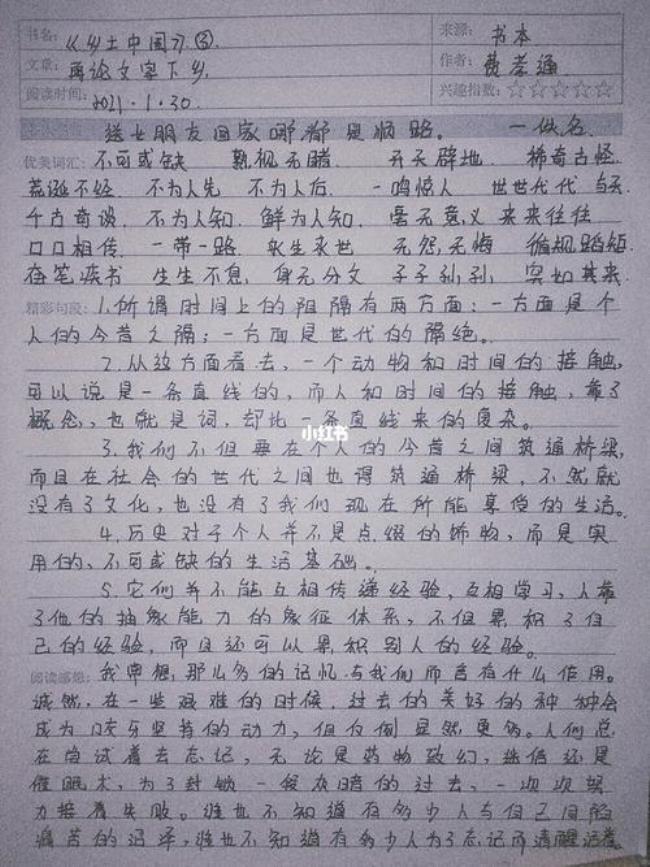 书名: 《乡土中国》. ③. 来源: 书本
文章: 再论文字下乡. 作者: 费孝通
阅读时间: 2021.1.30. 兴趣指数: ☆☆☆☆☆
送女朋友回家哪都是顺路。 —佚名.
优美词汇: 不可或缺 熟视无睹. 开天辟地. 稀奇古怪.
荒诞不经. 不为人先 不为人后. 一鸣惊人 世世代代
千古奇谈. 不为人知. 鲜为人知. 毫无意义 来来往往
口口相传. 一带一路. 永生永世 无怨无悔 循规蹈矩.
生生不息. 身无分文 子子孙孙. 突如其来.
精彩句段: 1.所谓时间上的阻隔有两方面:一方面是个
人的今昔之隔;一方面是世代的隔绝。
2.从这方面看去、一个动物和时间的接触,
可以说是一条直线的,而人和时间的接触,靠了
概念,也就是词,却比一条直线来的复杂。
小红书
3.我们不但要在个人的今昔之间筑通桥梁,
而且在社会的世代之间也得筑通桥梁,不然就
没有了文化,也没有了我们现在所能享受的生活。
4.历史对于个人并不是点缀的饰物,而是实
用的、不可或缺的生活基础。
5.它们并不能互相传递经验,互相学习,人靠
了他的抽象能力的象征体系,不但累积了自
己的经验,而且还可以累积别人的经验。
阅读感想: 我常想,那么多的记忆与我们而言有什么作用。
诚然,在一些艰难的时候,过去的美好的种种会
成为咬牙坚持的动力,但例显然更多。人们总
在尝试着去忘记,无论是药物致幻,迷信还是
催眠术,为了封锁一段灰暗的过去、一次次努
力接着失败。谁也不知道有多少人与自己
痛苦的,谁也不知道有多少人为了忘记而清醒活着